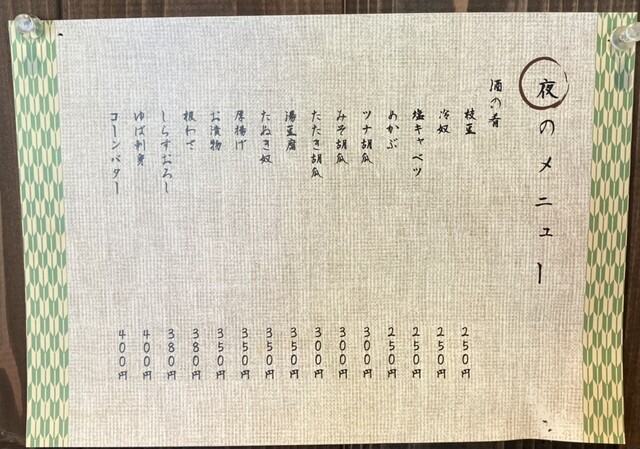 夜のメニュー
酒の肴
枝豆 250円
冷奴 250円
塩キャベツ 250円
めかぶ 250円
ツナ胡瓜 300円
みそ胡瓜 300円
たたき胡瓜 300円
湯豆腐 350円
たぬき奴 350円
厚揚げ 350円
お漬物 350円
板わさ 380円
しらすおろし 380円
ゆば刺身 400円
コーンバター 400円